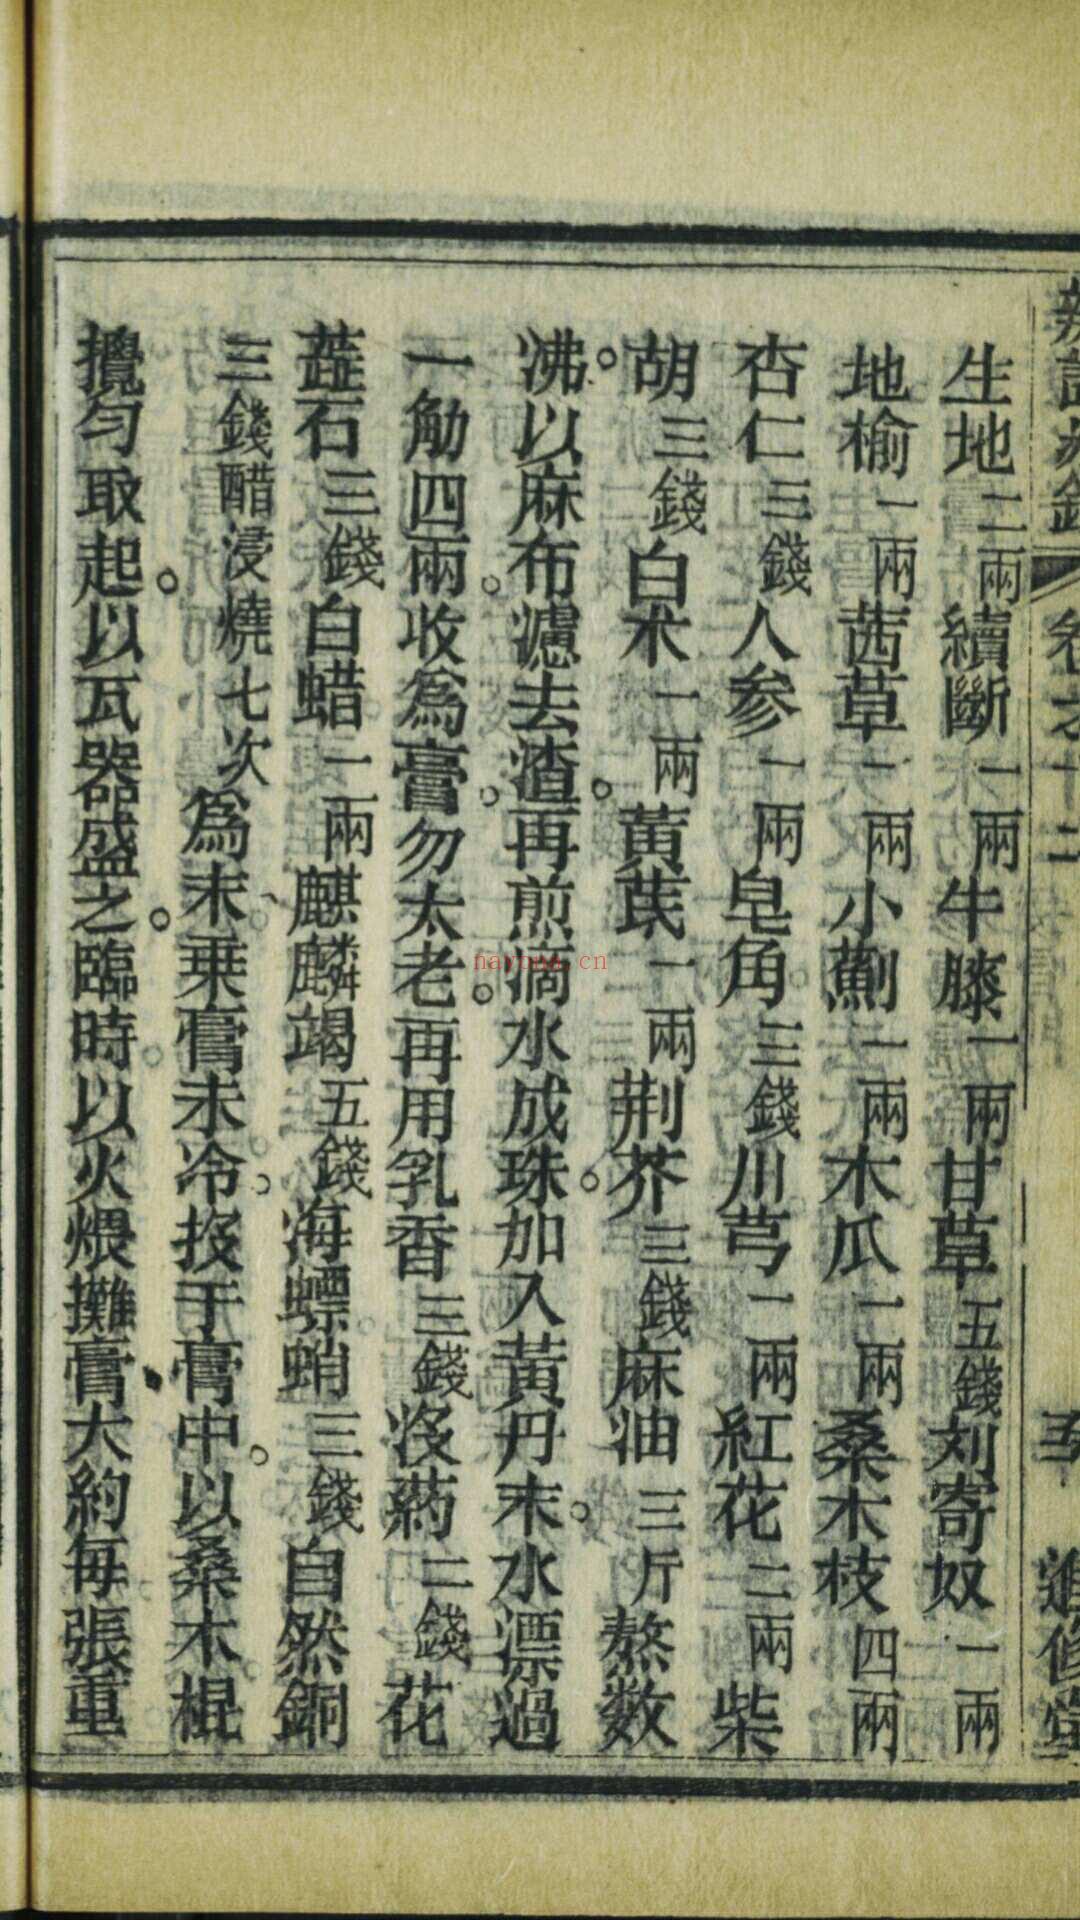 卷之十二
進修堂
生地二兩續斷一兩牛膝一兩甘草五錢刘寄奴一兩
地榆一兩茜草一兩小薊一兩木瓜一兩桑木枝四兩
杏仁三錢人参一兩皂角三錢川芎一兩紅花二兩柴
胡三錢白朮一兩黃茋一兩荆芥三錢麻油三斤熬数
沸。以麻布濾去渣。再煎滴水成珠。加入黃丹末。水漂過
一觔四兩。收爲膏。勿太老。再用乳香三錢沒葯二錢花
蕋石三錢白蜡一兩麒麟竭五錢海螵蛸三錢自然銅
三錢醋浸燒七次爲末。乘膏未冷。投于膏中。以桑木棍
攪匀取起。以瓦器盛之。臨時以火煨攤膏大約每張重
nayona.cn